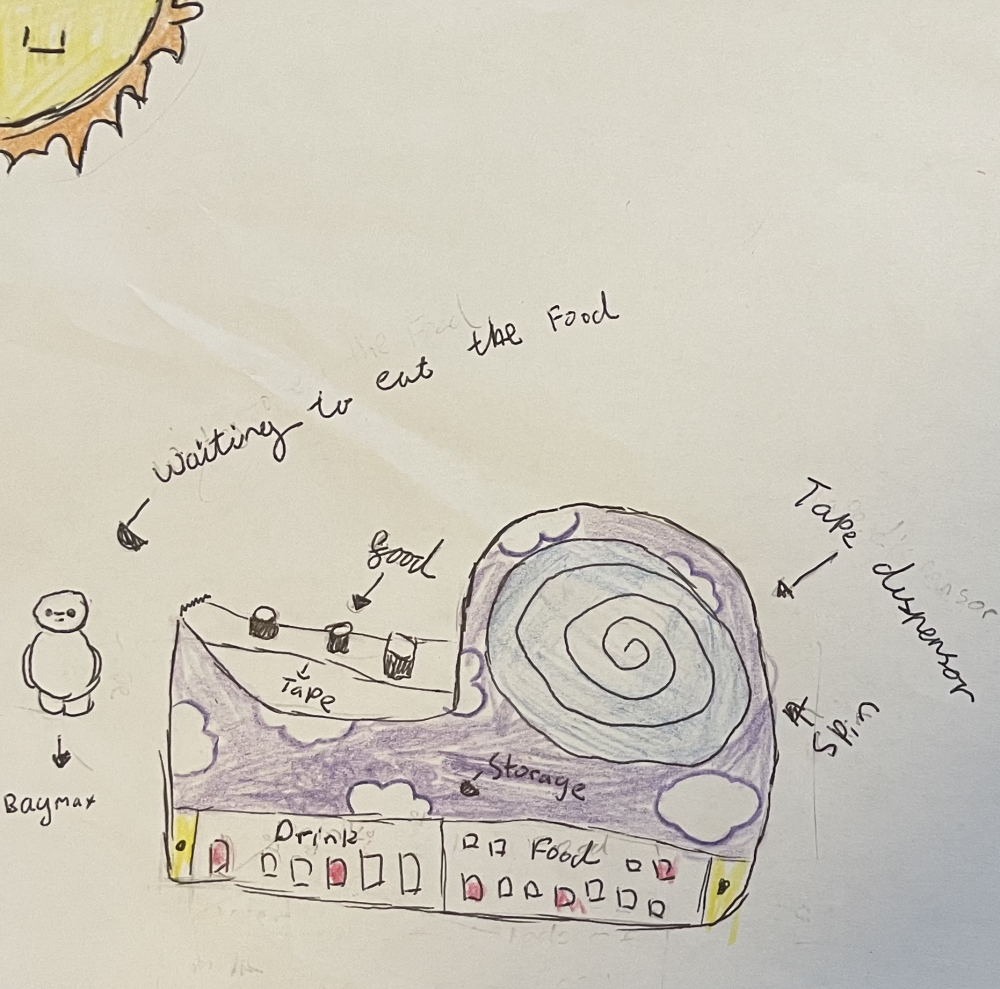 Waiting to eat the Food
food
Tape dispensor
Spin
Tape
Storage
Baymax
Drink
Food